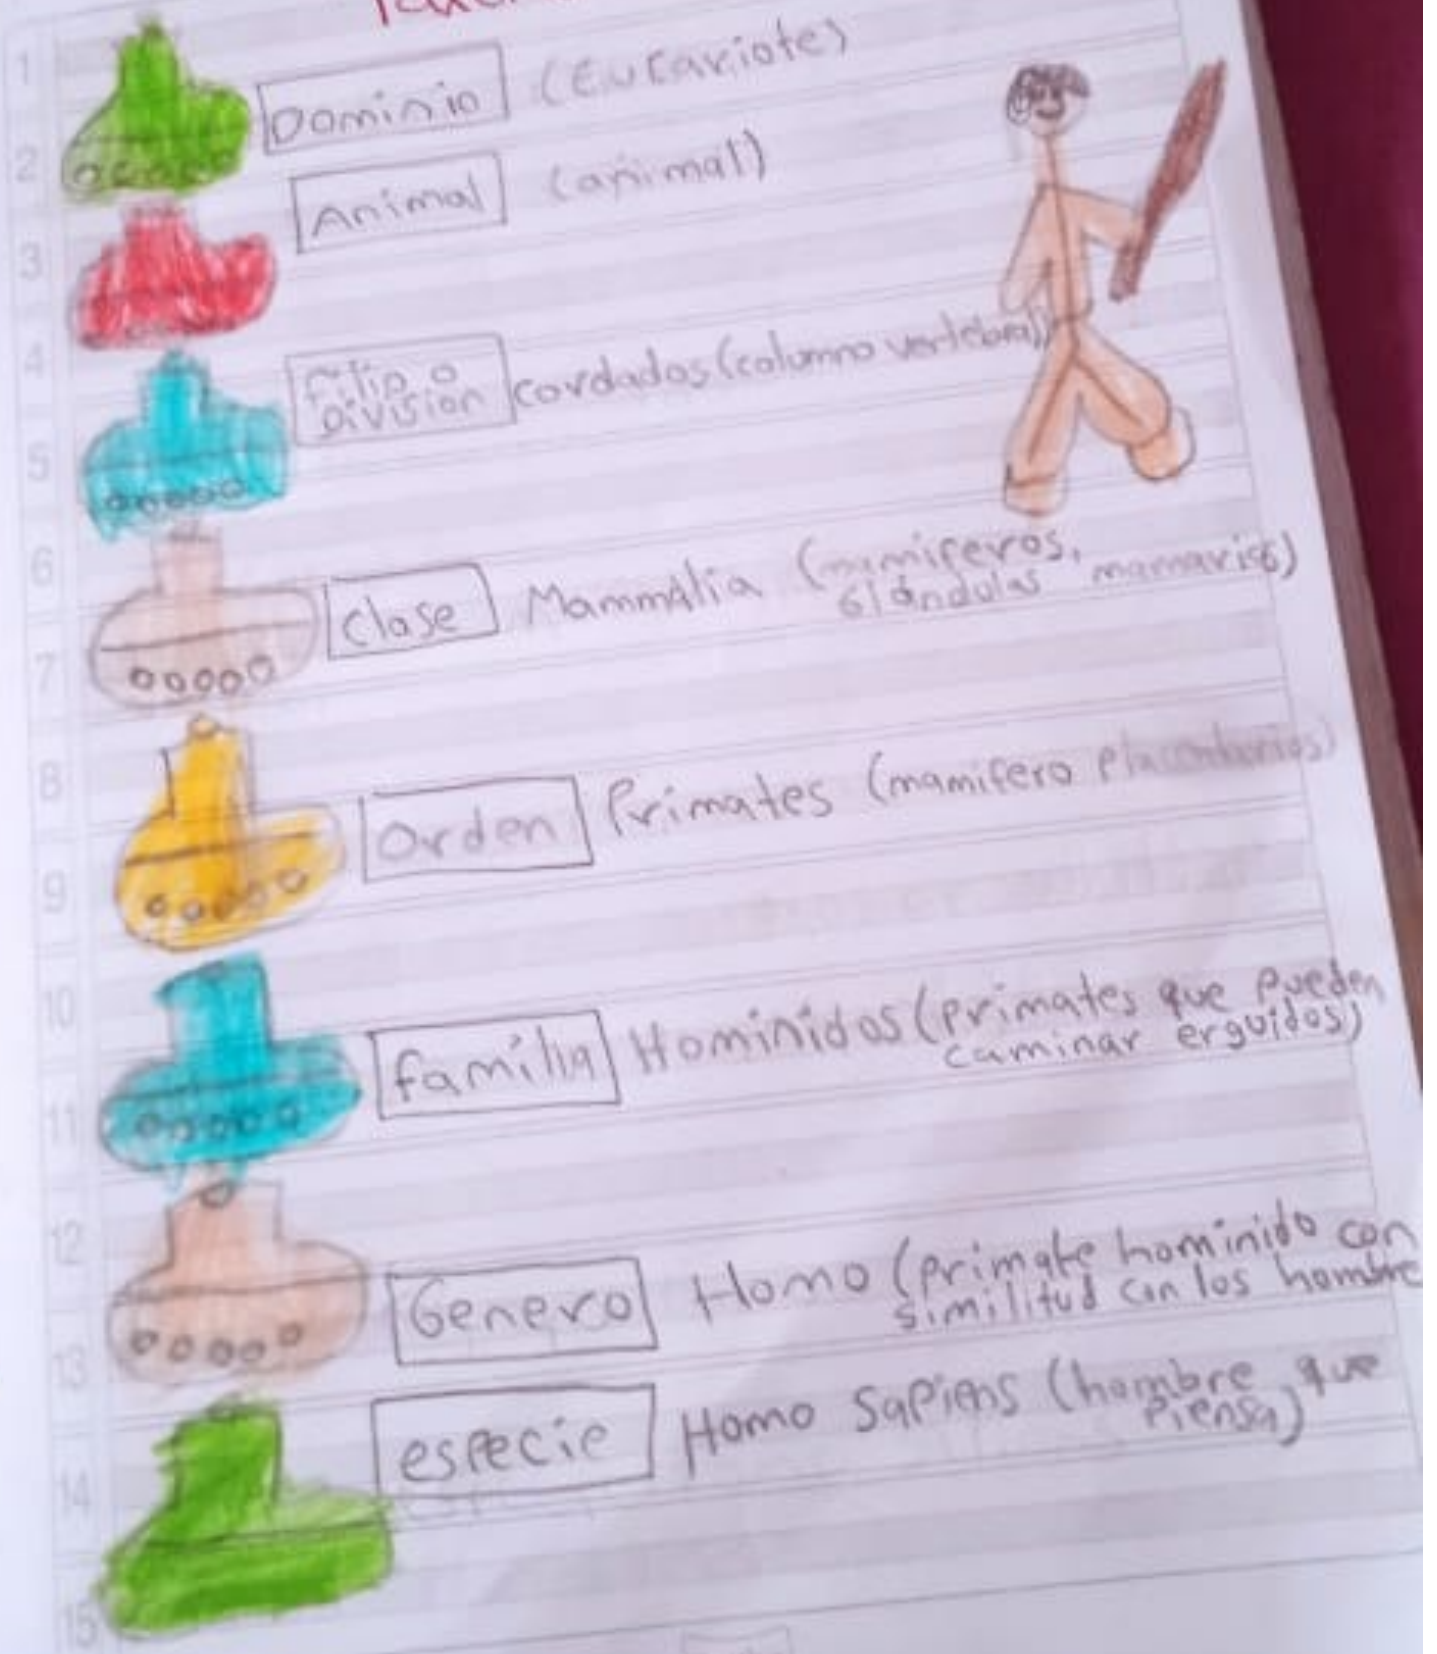 1
Dominio (Eucariote)
2
Animal (animal)
3
4
Filip o
División cordados (columna vertebral)
5
6
Clase Mammalia (mamiferos,
Glándulas mamarias)
7
8
Orden Primates (mamifero placentarios)
9
10
familia Hominidos (primates que pueden
caminar erguidos)
11
12
Genero Homo (primate hominido con
similitud con los hombre
13
especie Homo Sapiens (hombre que
piensa)
14
15